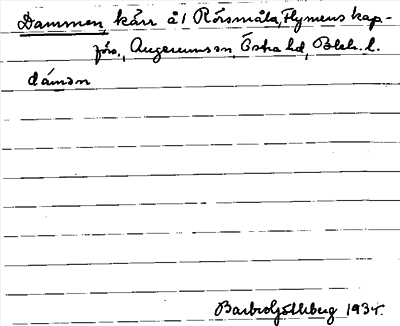 Dammen, kärr å 1 Rörsmåla, Flymens kap-
förs., Augerums sn, Östra hd, Blek. l.
dámən
Barbro Götlberg 1935.